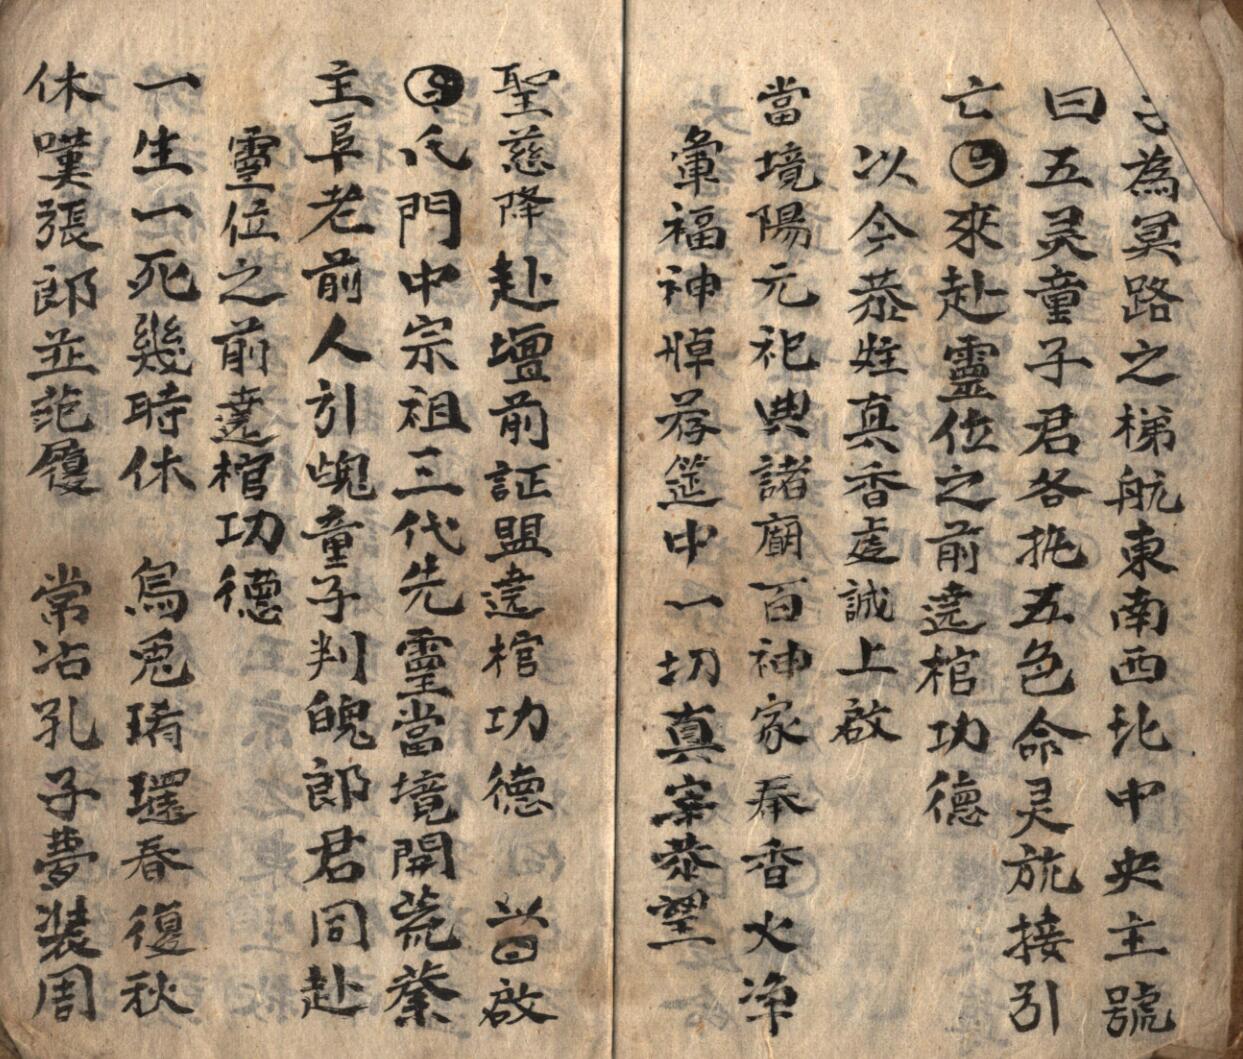 為冥路之梯航東南西北中央主號
曰五灵童子君各执五色命灵旂接引
亡來赴靈位之前遶棺功德
以今恭炷真香虔誠上啟
當境陽元祀典諸廟百神家奉香火净
彙福神悼荐筵中一切真宰恭望
聖慈降赴壇前証盟遶棺功德 啟
氏門中宗祖三代先靈當境開荒蔡
主阜老前人引魂童子判魄郎君同赴
靈位之前遶棺功德
一生一死幾時休 烏兎 環春復秋
休嘆張郎並范履 常沾孔子夢裝周